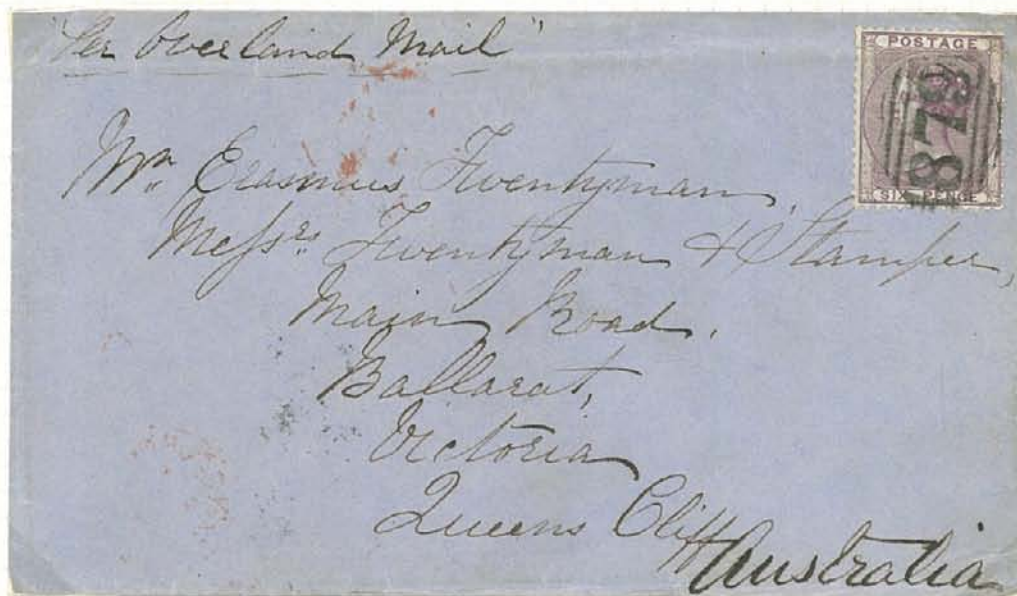 "Per Overland Mail"
POSTAGE
879
SIX PENCE
Mr. Erasmus Twentyman,
Messrs. Twentyman & Stamper,
Main Road,
Ballarat,
Victoria
Queens Cliff
Australia